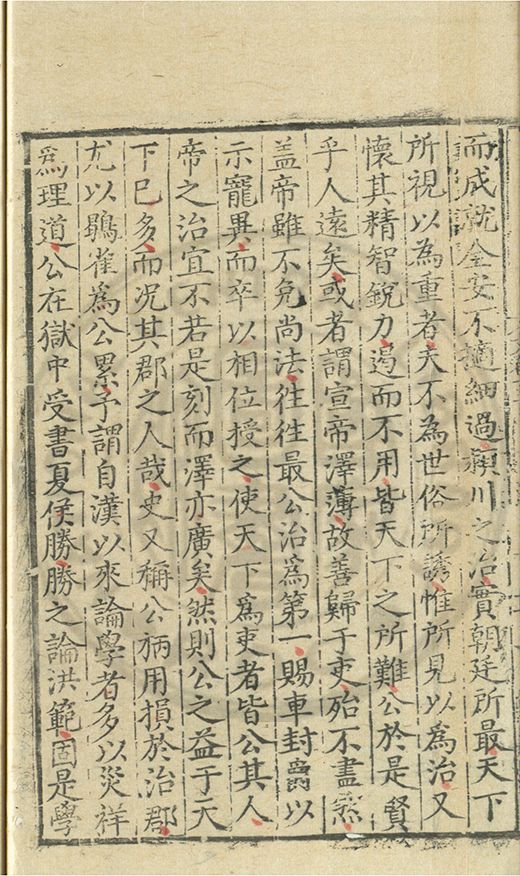 而成就全安不適細過潁川之治實朝廷所最天下
所視以為重者夫不為世俗所誘惟所見以為治又
懷其精智銳力遏而不用皆天下之所難公於是賢
乎人遠矣或者謂宣帝澤薄故善歸于吏殆不盡然
盖帝雖不免尚法往往最公治為第一賜車封爵以
示寵異而卒以相位授之使天下為吏者皆公其人
帝之治宜不若是刻而澤亦廣矣然則公之益于天
下已多而况其郡之人哉史又稱公柄用損於治郡
尤以鶡雀為公累予謂自漢以來論學者多以災祥
為理道公在獄中受書夏侯勝勝之論洪範固是學